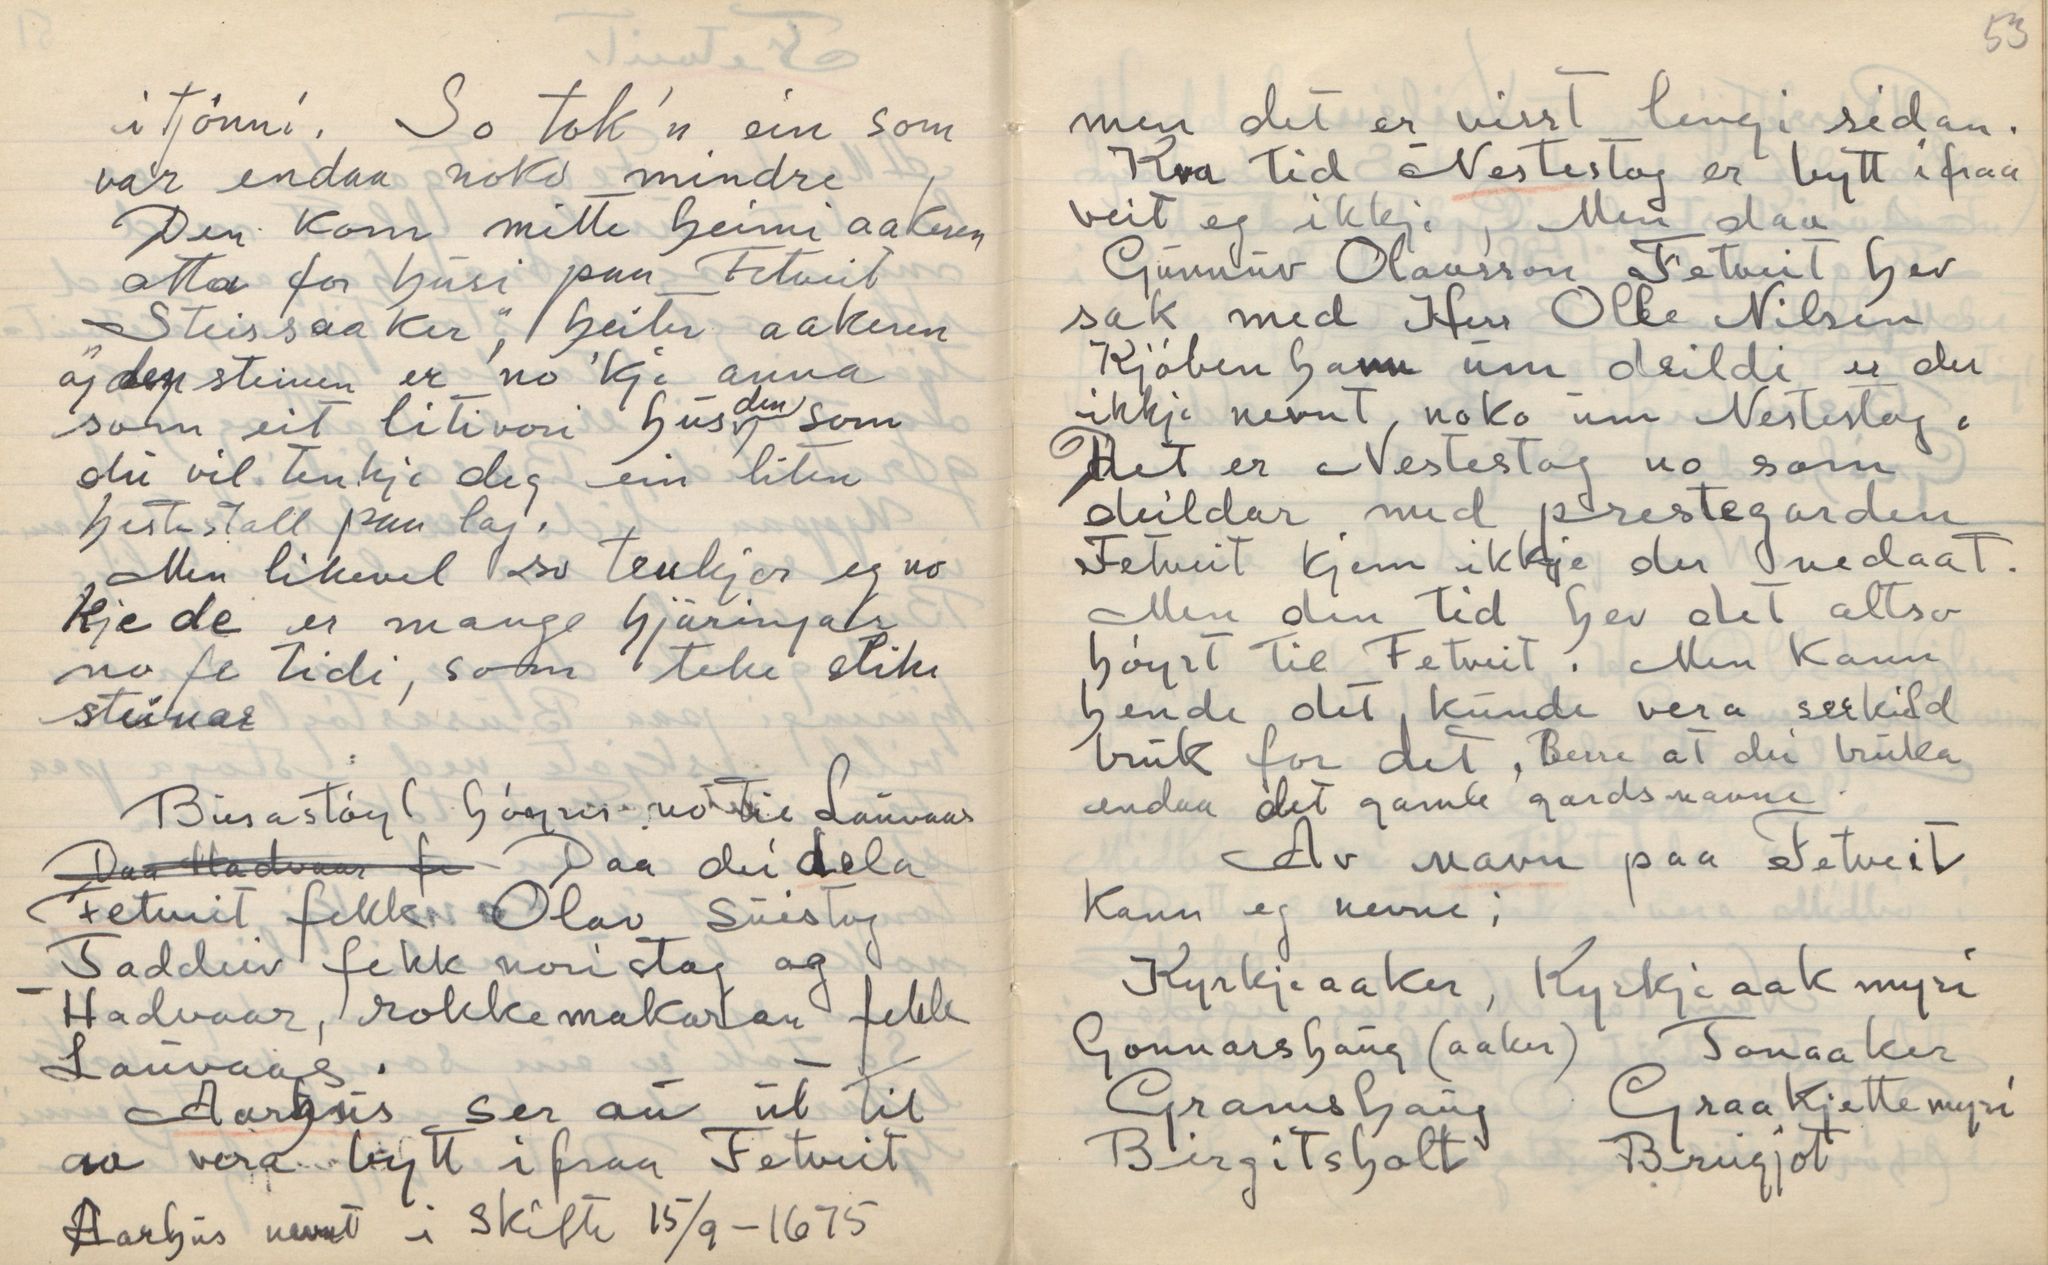 i tjönni. So tok'n ein som
var endaa noko mindre
Den kom mitte heimi aakeren
atta for husi paa Fetveit
"Steissaaker", heiter aakeren
og den steinen er no 'kje anna
som eit litivori hus, den som
du vil tenkje deg ein liten
hestestall paa lag.
Men likevel so tenkjer eg no
kje de er mange kjæringar
no fe tidi, som teke slike
steinar
Busastöyl höyrer no til Lauvaas
Daa Hadvaar fe Daa dei dela
Fetveit fekk Olav Suistog
Taddeiv fekk noristog og
Hadvaar, rokkemakaran fekk
Lauvaas.
Aarhus ser au ut til
aa vera bytt ifraa Fetveit
Aarhus nevnt i skifte 15/9-1675
53
men det er visst lengi sidan.
Kva tid Nestestog er bytt ifraa
veit eg ikkje, Men daa
Gunnuv Olavsson Fetveit hev
sak med Herr Olle Nilsen
Kjöbenhavn um deildi er der
ikkje nevnt noko um Nestestog.
Det er Nestestog no som
deildar med prestegarden
Fetveit kjem ikkje der nedaat.
Men den tid hev det altso
höyrt til Fetveit. Men kann
hende det kunde vera serkild
bruk for det, Berre at dei bruka
endaa det gamle gardsnavne.
Av navn paa Fetveit
kann eg nevne;
Kyrkjeaaker, Kyrkjeaakmyri
Gonnarshaug (aaker) Tonaaker
Gramshaug Graakjettemyri
Birgitsholt Brugjot